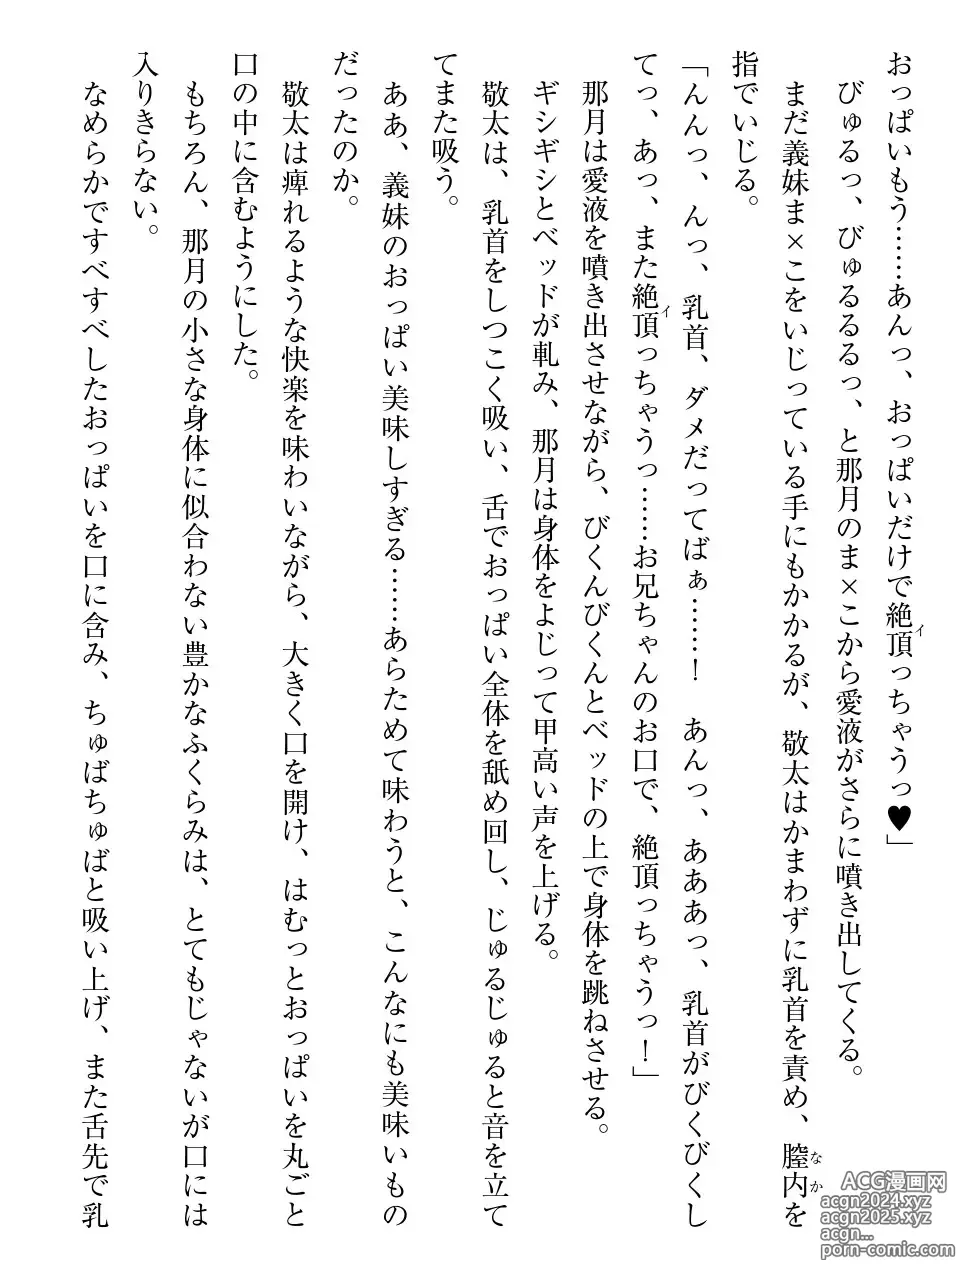 おっぱいもう……あんっ、おっぱいだけで絶頂っちゃうっ♥」
びゅるっ、びゅるるるっ、と那月のま×こから愛液がさらに噴き出してくる。
まだ義妹ま×こをいじっている手にもかかるが、敬太はかまわずに乳首を責め、膣内を
指でいじる。
「んんっ、んっ、乳首、ダメだってばぁ……！　あんっ、あああっ、乳首がびくびくし
てっ、あっ、また絶頂っちゃうっ……お兄ちゃんのお口で、絶頂っちゃうっ！」
那月は愛液を噴き出させながら、びくんびくんとベッドの上で身体を跳ねさせる。
ギシギシとベッドが軋み、那月は身体をよじって甲高い声を上げる。
敬太は、乳首をしつこく吸い、舌でおっぱい全体を舐め回し、じゅるじゅると音を立て
てまた吸う。
ああ、義妹のおっぱい美味しすぎる……あらためて味わうと、こんなにも美味いもの
だったのか。
敬太は痺れるような快楽を味わいながら、大きく口を開け、はむっとおっぱいを丸ごと
口の中に含むようにした。
もちろん、那月の小さな身体に似合わない豊かなふくらみは、とてもじゃないが口には
入りきらない。
なめらかですべすべしたおっぱいを口に含み、ちゅばちゅばと吸い上げ、また舌先で乳
ACG漫画网
acgn2024.xyz
acgn2025.xyz
acgn...
porn-comic.com